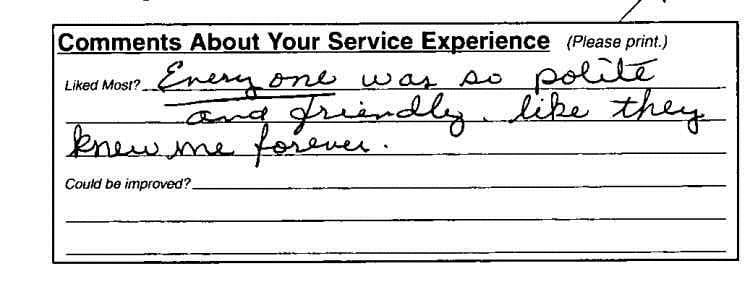 Comments About Your Service Experience (Please print.)
Liked Most? Everyone was so polite
and friendly. like they
knew me forever.
Could be improved?